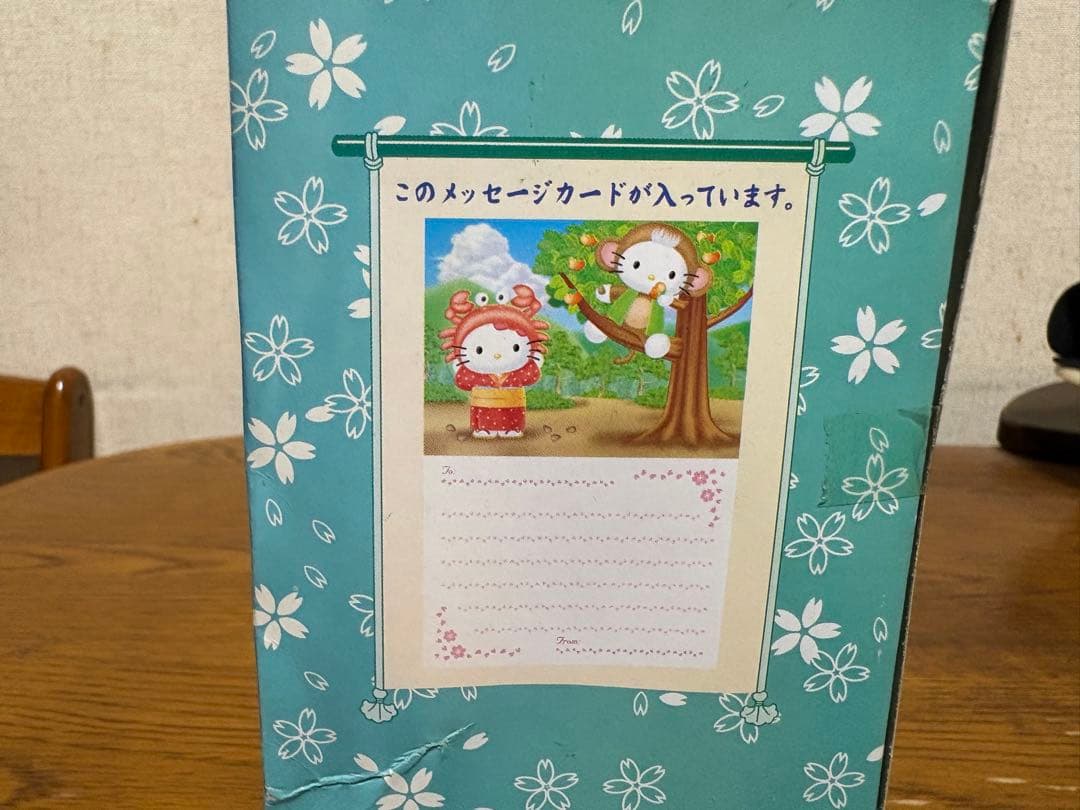 このメッセージカードが入っています。
To:
From: